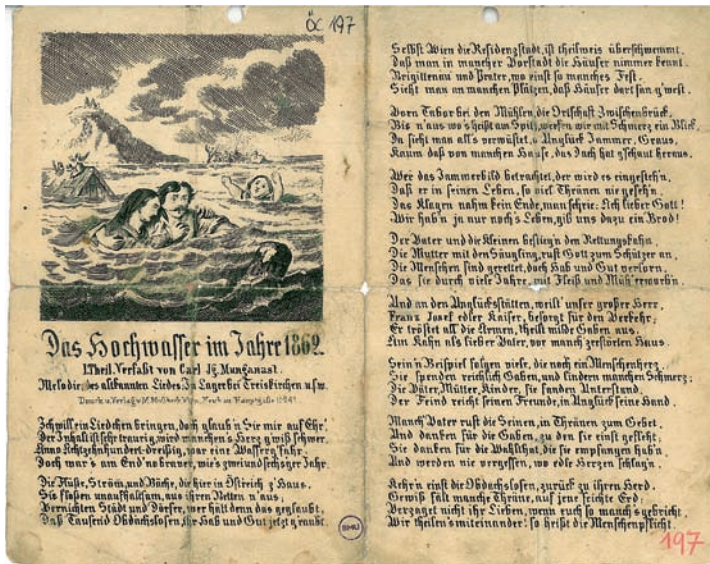 ÖC 197
Das Hochwasser im Jahre 1862.
I.Theil. Verfaßt von Carl Jg. Munganast.
Melodie, des altbekannten Liedes: In Lager bei Treiskirchen u.s.w.
Druck u. Verlag v. M. Moßbeck Wien, Neub
Ich will ein Liedchen bringen, doch glaub'n Sie mir auf Ehr'
Der Inhalt ist sehr traurig, wird manchen's Herz g'wiß schwer.
Anno Achtzehnhundert-dreißig, war eine Wasserg'fahr.
Doch war's am End' no braver, wie's zweiundsechz'ger Jahr.
Die Flüße, Ström, und Bäche, die hier in Östreich z'Haus,
Sie floßen unaufhaltsam, aus ihren Betten n'aus;
Vernichten Städt und Dörfer, wer hält denn das geglaubt,
Daß Tausend Obdachslosen, ihr Hab und Gut jetzt g'raubt.
BMU
Selbst Wien die Residenzstadt, ist theilweis überschwemmt,
Daß man in mancher Vorstadt die Häuser nimmer kennt.
Brigittenau und Prater, wo einst so manches Fest,
Sieht man an manchen Plätzen, daß Häuser dort san g'west.
Vorn Tabor bei den Mühlen, die Ortschaft Zwischenbrück,
Bis n'aus wo's heißt am Spitz, werfen wir mit Schmerz ein Blick,
Da sieht man all's verwüstet, o Unglück Jammer, Graus,
Kaum daß von manchen Hause, das Dach hat g'schaut heraus.
Wer das Jammerbild betrachtet, der wird es eingesteh'n,
Daß er in seinen Leben, so viel Thränen nie geseh'n.
Das Klagen nahm kein Ende, man schreie: Ach lieber Gott!
Wir hab'n ja nur noch's Leben, gib uns dazu ein Brod!
Der Vater und die Kleinen bestieg'n den Rettungskahn,
Die Mutter mit den Säugling, ruft Gott zum Schützer an,
Die Menschen sind gerettet, doch Hab und Gut verlorn,
Das sie durch viele Jahre, mit Fleiß und Müh' erworb'n.
Und an den Unglücksstätten, weilt' unser großer Herr,
Franz Josef edler Kaiser, besorgt für den Verkehr;
Er tröstet all' die Armen, theilt milde Gaben aus.
Am Kahn als lieber Vater, vor manch zerstörten Haus.
Sein'n Beispiel folgen viele, die noch ein Menschenherz,
Sie spenden reichlich Gaben, und lindern manchen Schmerz;
Die Väter, Mütter, Kinder, sie fanden Unterstand,
Der Feind reicht seinen Freunde, in Unglück seine Hand.
Manch' Vater ruft die Seinen, in Thränen zum Gebet,
Und danken für die Gaben, zu den sie einst gefleht;
Sie danken für die Wohlthat, die sie empfangen hab'n,
Und werden nie vergessen, wo edle Herzen schlag'n.
Kehr'n einst die Obdachslosen, zurück zu ihren Herd.
Gewiß falt manche Thräne, auf jene feichte Erd;
Verzaget nicht ihr Lieben, wenn euch so manch's gebricht,
Wir theilen's miteinander: so heißt die Menschenpflicht.
197